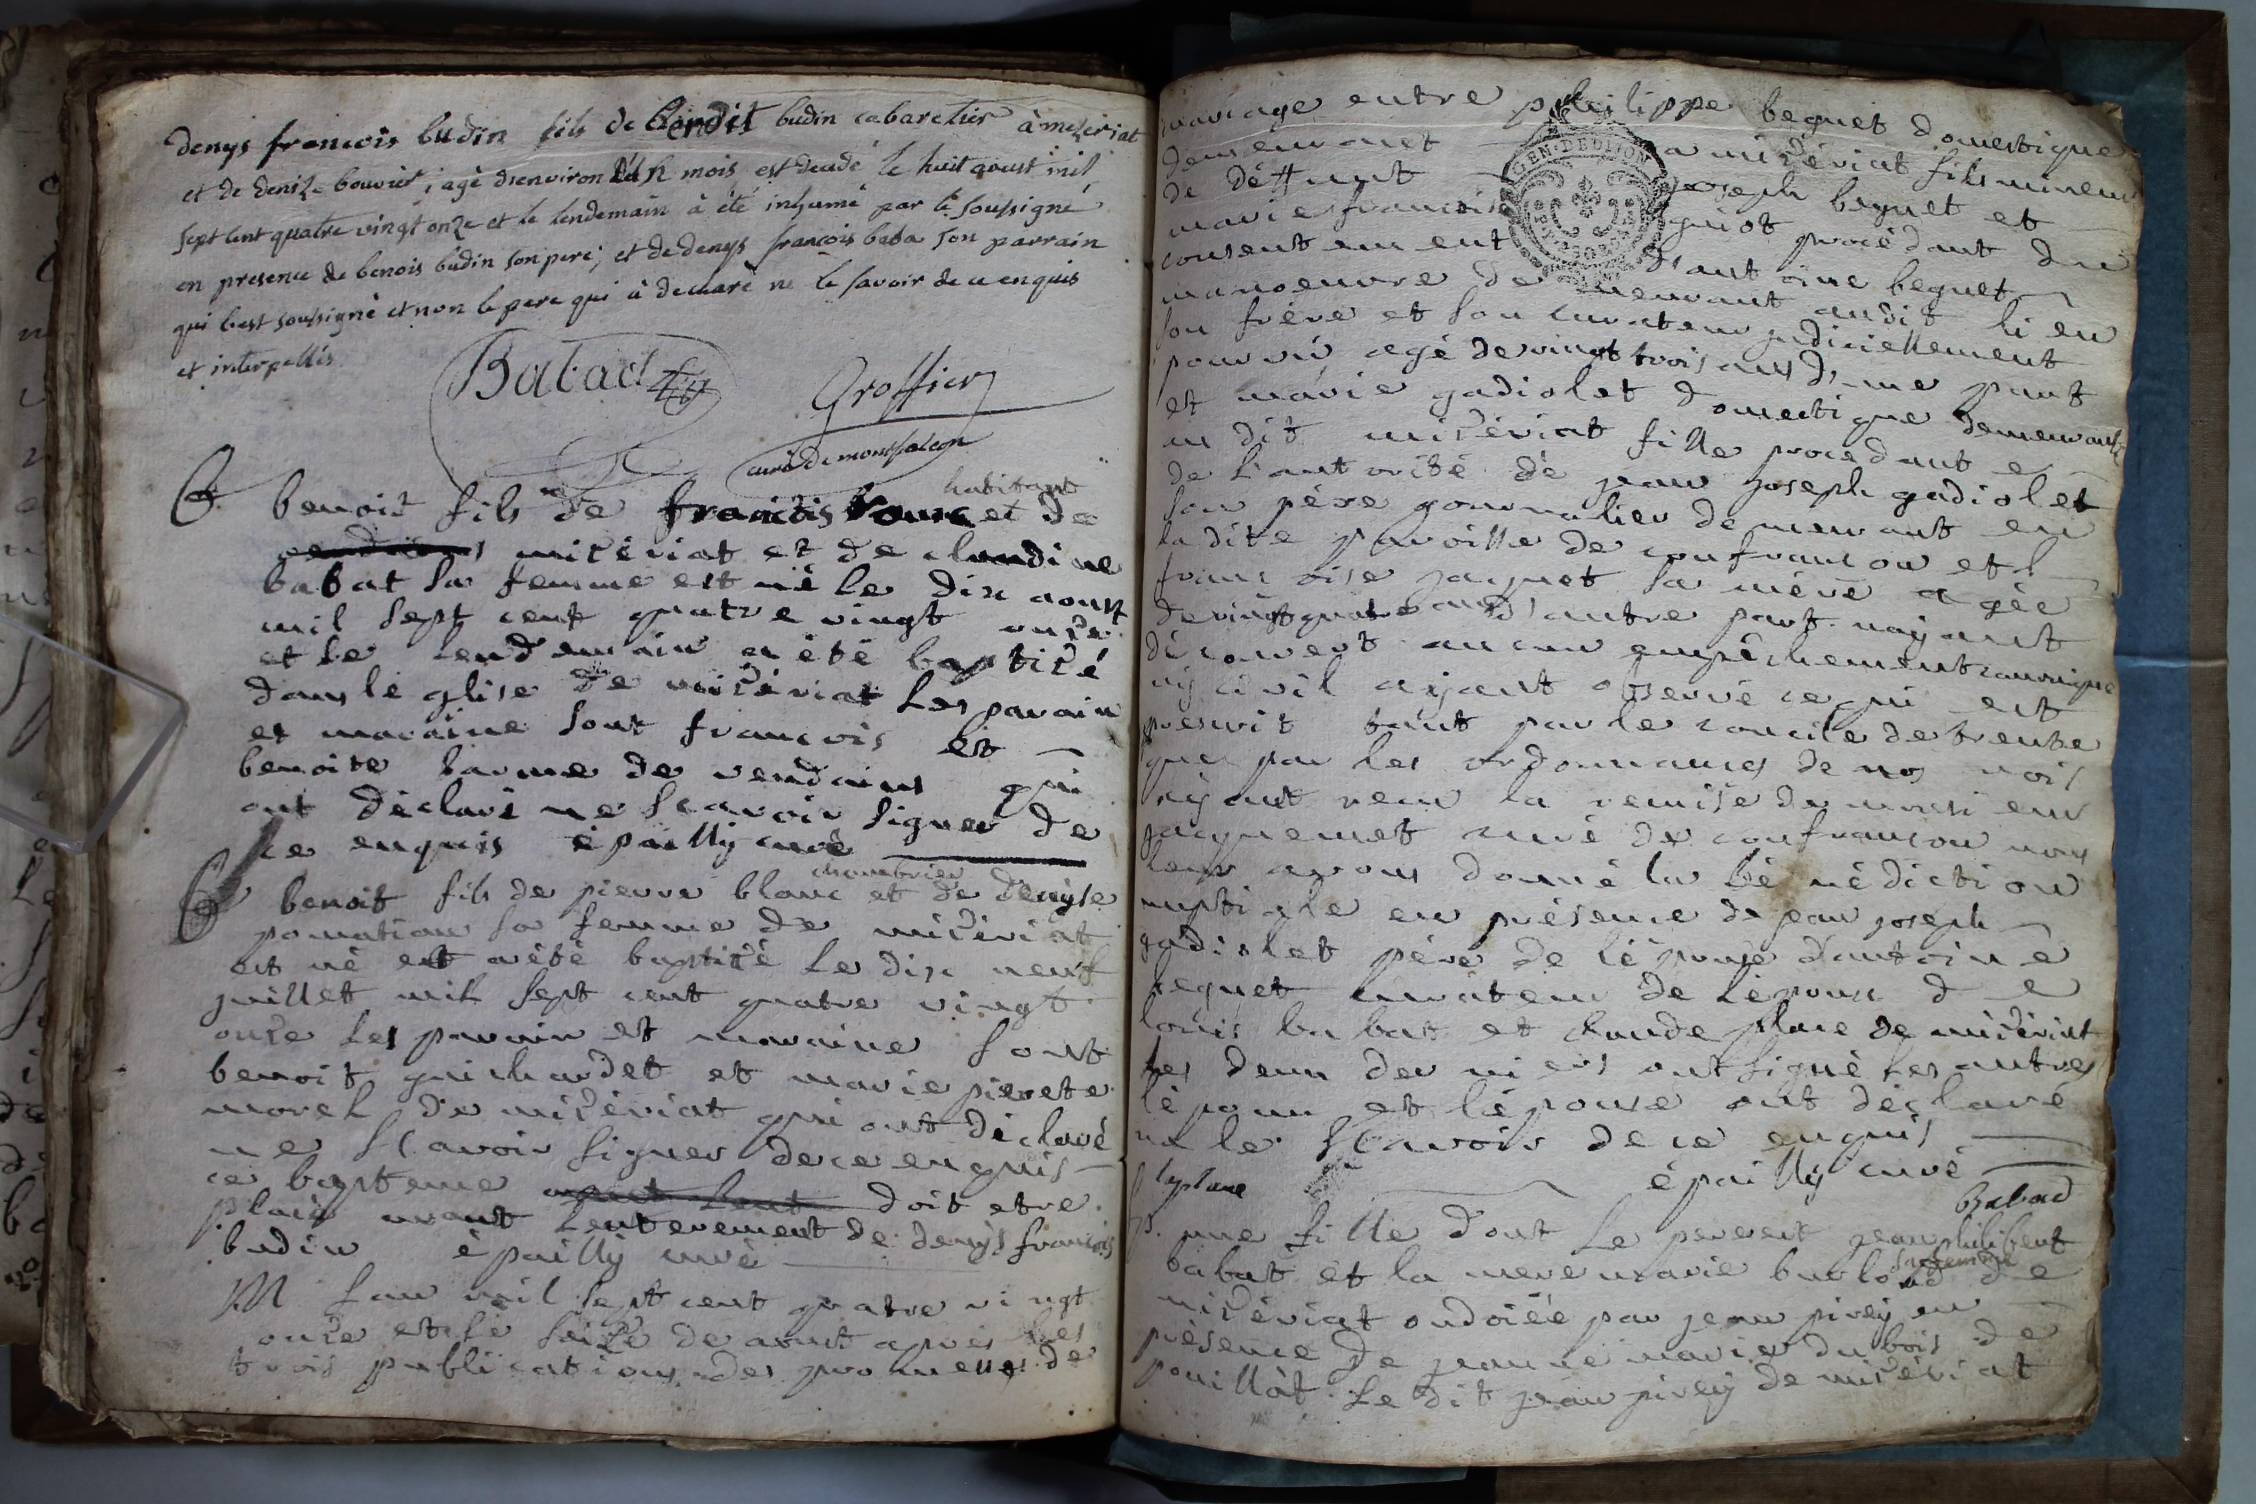 denys francois budin fils de Benoit budin cabaretier à mezeriat
et de denize bouvier, agé d'environ un mois est decedé le huit aoust mil
sept cent quatre vingt onze et le lendemain à été inhumé par le soussigné
en presence de benois budin son pere, et de denys francois baba son parrain
qui s'est soussigné et non le pere qui à declaré ne le savoir de ce enquis
et interpellés
Babad Groffier
curé de montfalcon
B benoit fils de francois et de
habitant
mizériat et de claudine
babat sa femme est né le dix aoust
mil sept cent quatre vingt onze
et le lendemain a été baptizé
dans léglise de mizériat les parain
et maraine sont francois et
benoite de vendains qui
ont déclaré ne scavoir signer de
ce enquis épailly curé
B benoit fils de pierre blanc et de denyse
chambrier
sa femme de mizériat
est né est a été baptizé le dix neuf
juillet mil sept cent quatre vingt
onze les parain et maraine sont
benoit guichardet et marie pierete
morel de mizériat qui ont déclaré
ne scavoir signer de ce enquis
ce bapteme doit etre
placé avant lenterement de denys francois
budin épailly curé
M Lan mil sept cent quatre vingt
onze et le seize de aout apres les
trois publications des promesses de
mariage entre philippe beguet domestique
demeurant a mizériat fils mineur
de déffunt joseph beguet et
marie francoise guiot procédant du
consentement d'antoine beguet
manoeuvre demeurant audit lieu
son frére et son curateur judiciellement
pourvu agé de vingt trois ans d'une part
et marie gadiolet domestique demeurante
au dit mizériat fille procedant e
de l'autorité de jean joseph gadiolet
son pére journalier demeurant en
la dite paroisse de confrancon et
francoise jaquet sa mére agée
de vingt quatre ans d'autre part nayant
découvert aucun empêchement canonique
ny civil ayant observé ce qui est
prescrit tant par le concile de trente
que par les ordonnances de nos rois
ayant veu la remise de monsieur
jacquemet curé de confrancon nous
leur avons donné la bénédiction
nuptiale en présence de jean joseph
gadiolet pére de l'épouse dantoine
beguet curateur de l'époux de
louis babat et claude place de mizériat
les deux derniers ont signé les autres
l'époux et l'épouse ont déclaré
ne le scavoir de ce enquis
épailly curé
laplace Babad
B. une fille dont le pere est jean philibert
babat et la mere marie burlod de
sa femme
mizériat ondoiée par jean pirey en
présence de jeanne marie dubois de
pouillat. Le dit jean pirey de mizériat
GEN·DE DIJON